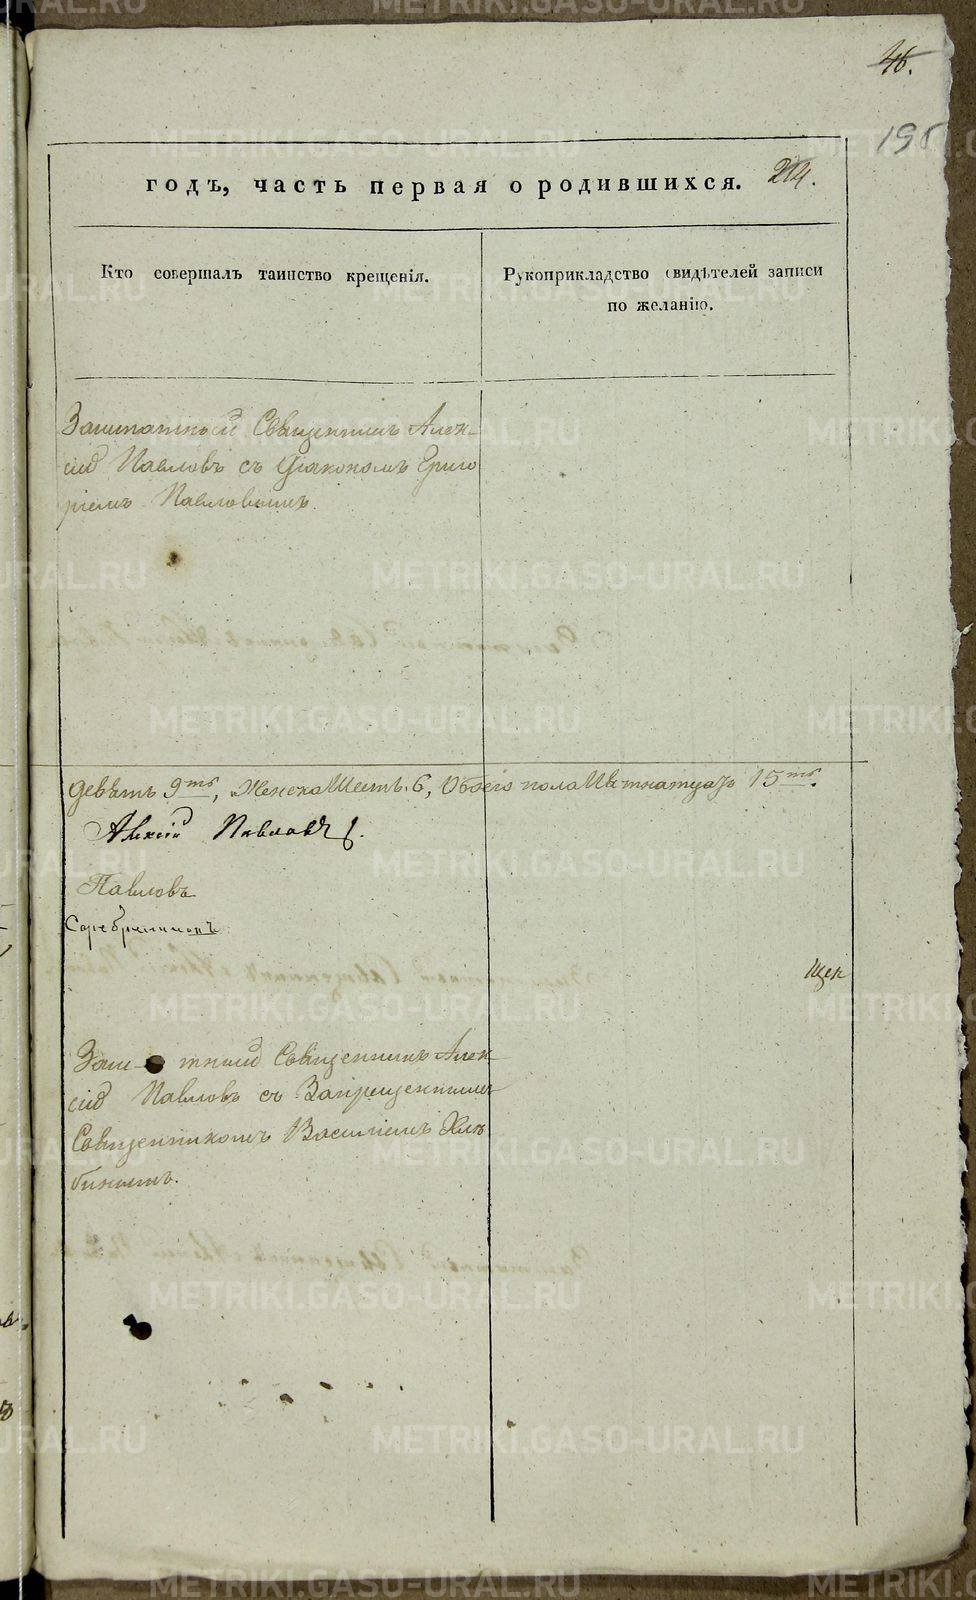 46.
195
годъ, часть первая о родившихся. 214.
Кто совершалъ таинство крещенія.
Рукоприкладство свидѣтелей записи
по желанію.
Заштатный Священникъ Алек-
сій Павловъ съ Діакономъ Григо
ріемъ Павловымъ.
девять 9ть, Женска Шесть. 6, Обоего пола Пятнатцать 15ть.
Алексій Павловъ
Павловъ
Серебренниковъ
Щек
Заш тный Священникъ Алек-
сій Павловъ съ Запрещеннымъ
Священникомъ Василіемъ Хлѣ
бинымъ.
METRIKI.GASO-URAL.RU